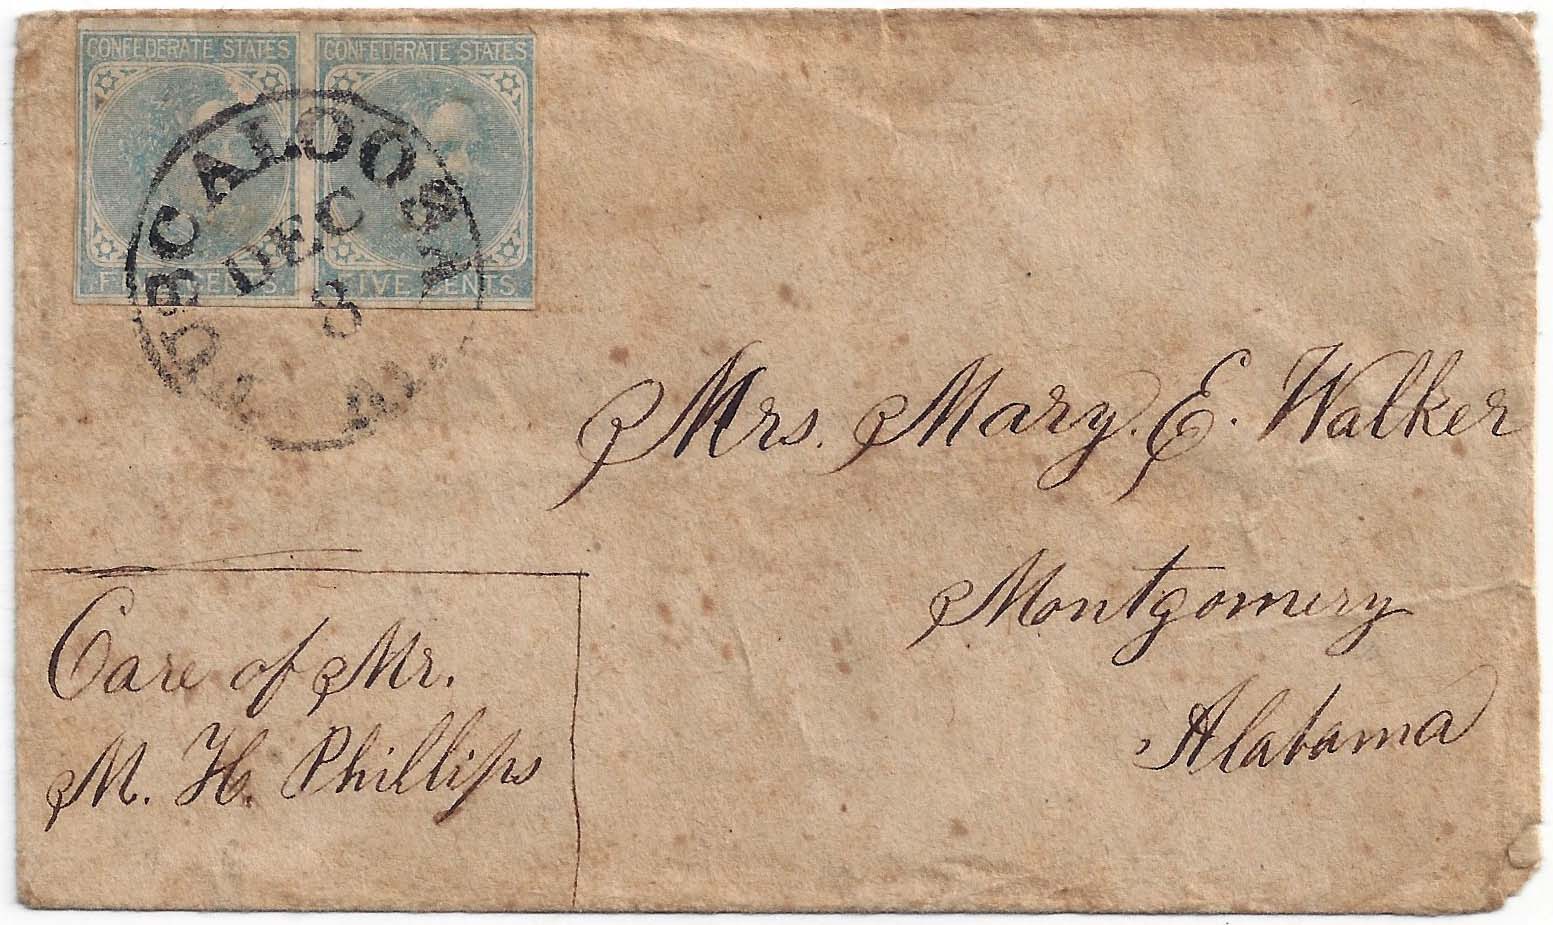 CONFEDERATE STATES CONFEDERATE STATES
CENTS. FIVE CENTS.
TUSCALOOSA
DEC
8
Mrs. Mary. E. Walker
Montgomery
Alabama
Care of Mr.
M. H. Phillips